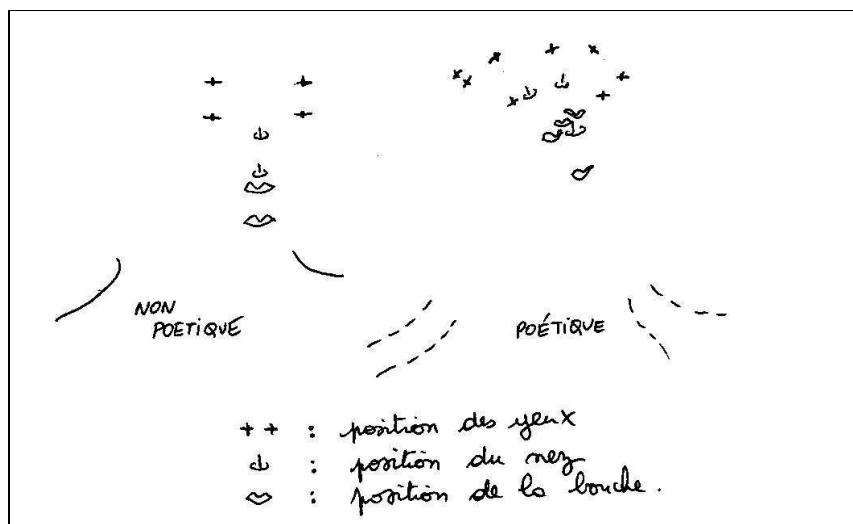 NON
POETIQUE
POÉTIQUE
++ : position des yeux
: position du nez
: position de la bouche.